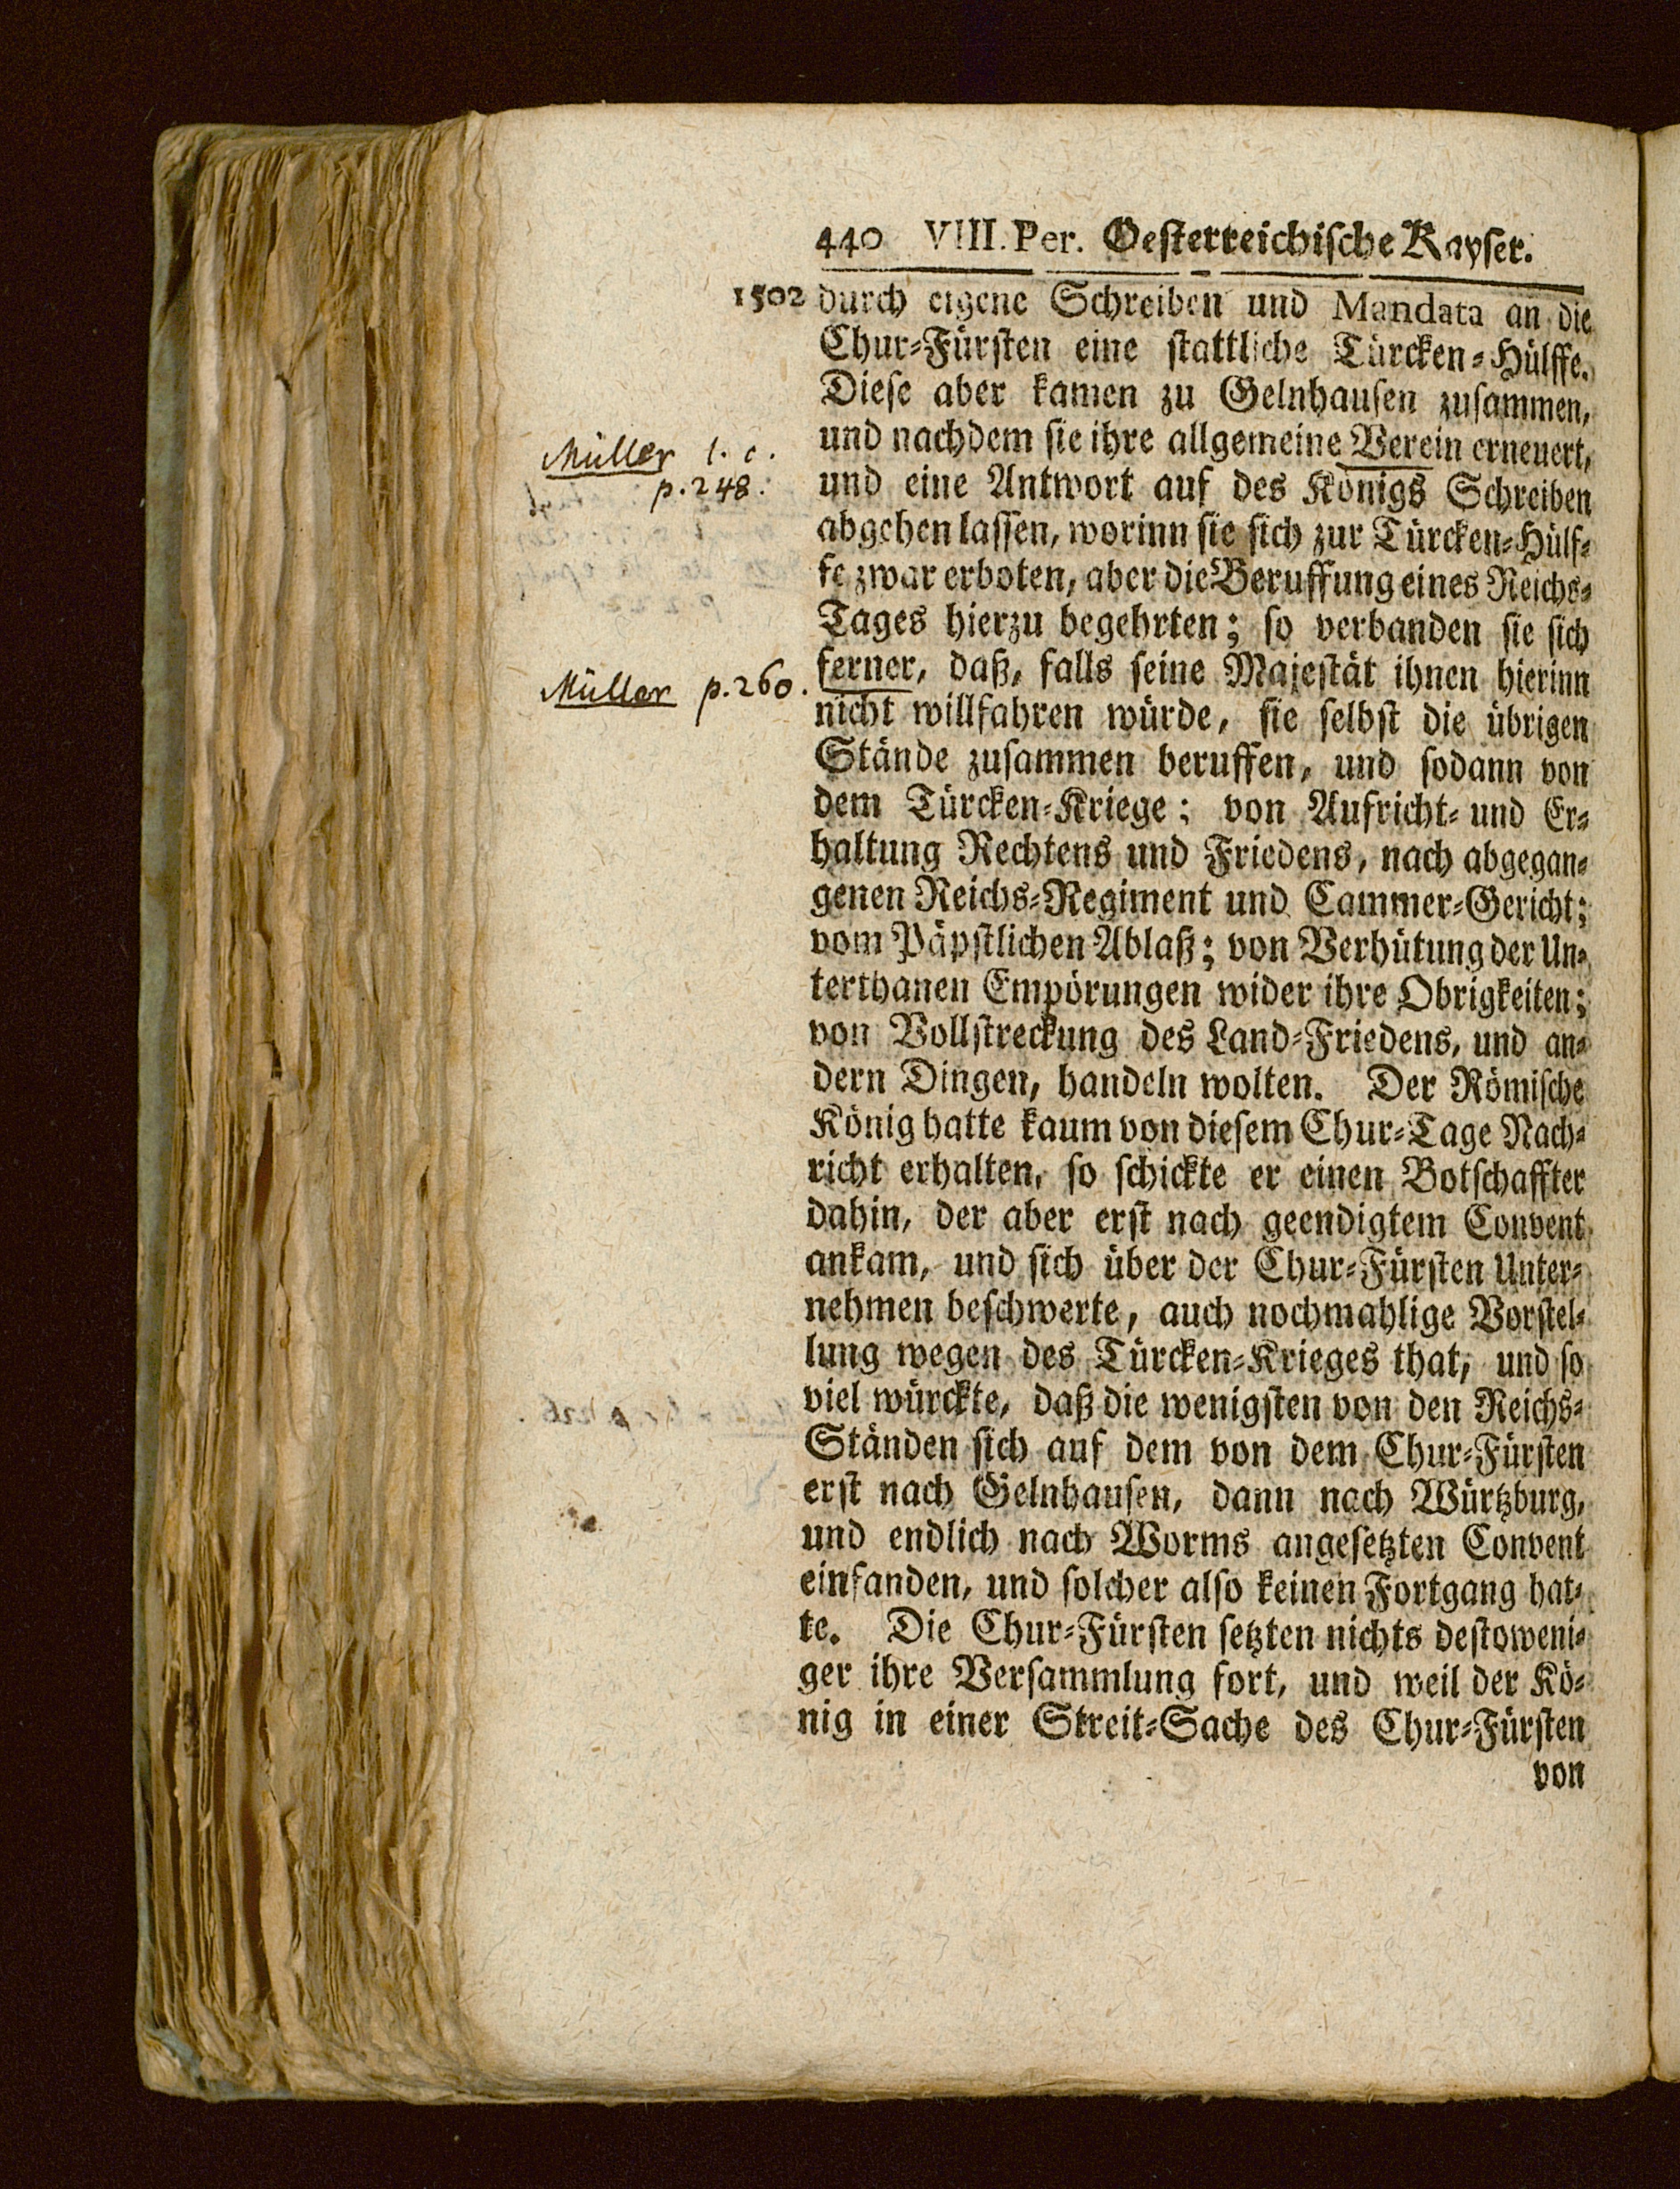 440 VIII. Per. Oesterreichische Kayser.
1502 durch eigene Schreiben und Mandata an die
Chur-Fürsten eine stattliche Türcken-Hülffe.
Diese aber kamen zu Gelnhausen zusammen,
und nachdem sie ihre allgemeine Verein erneuert,
Müller l. c.
p. 248.
und eine Antwort auf des Königs Schreiben
abgehen lassen, worinn sie sich zur Türcken-Hülf-
fe zwar erboten, aber die Beruffung eines Reichs-
Tages hierzu begehrten; so verbanden sie sich
Müller p. 260.
ferner, daß, falls seine Majestät ihnen hierinn
nicht willfahren würde, sie selbst die übrigen
Stände zusammen beruffen, und sodann von
dem Türcken-Kriege; von Aufricht- und Er-
haltung Rechtens und Friedens, nach abgegan-
genen Reichs-Regiment und Cammer-Gericht;
vom Päpstlichen Ablaß; von Verhütung der Un-
terthanen Empörungen wider ihre Obrigkeiten;
von Vollstreckung des Land-Friedens, und an-
dern Dingen, handeln wolten. Der Römische
König hatte kaum von diesem Chur-Tage Nach-
richt erhalten, so schickte er einen Botschaffter
dahin, der aber erst nach geendigtem Convent
ankam, und sich über der Chur-Fürsten Unter-
nehmen beschwerte, auch nochmahlige Vorstel-
lung wegen des Türcken-Krieges that, und so
viel würckte, daß die wenigsten von den Reichs-
Ständen sich auf dem von dem Chur-Fürsten
erst nach Gelnhausen, dann nach Würtzburg,
und endlich nach Worms angesetzten Convent
einfanden, und solcher also keinen Fortgang hat-
te. Die Chur-Fürsten setzten nichts destoweni-
ger ihre Versammlung fort, und weil der Kö-
nig in einer Streit-Sache des Chur-Fürsten
von